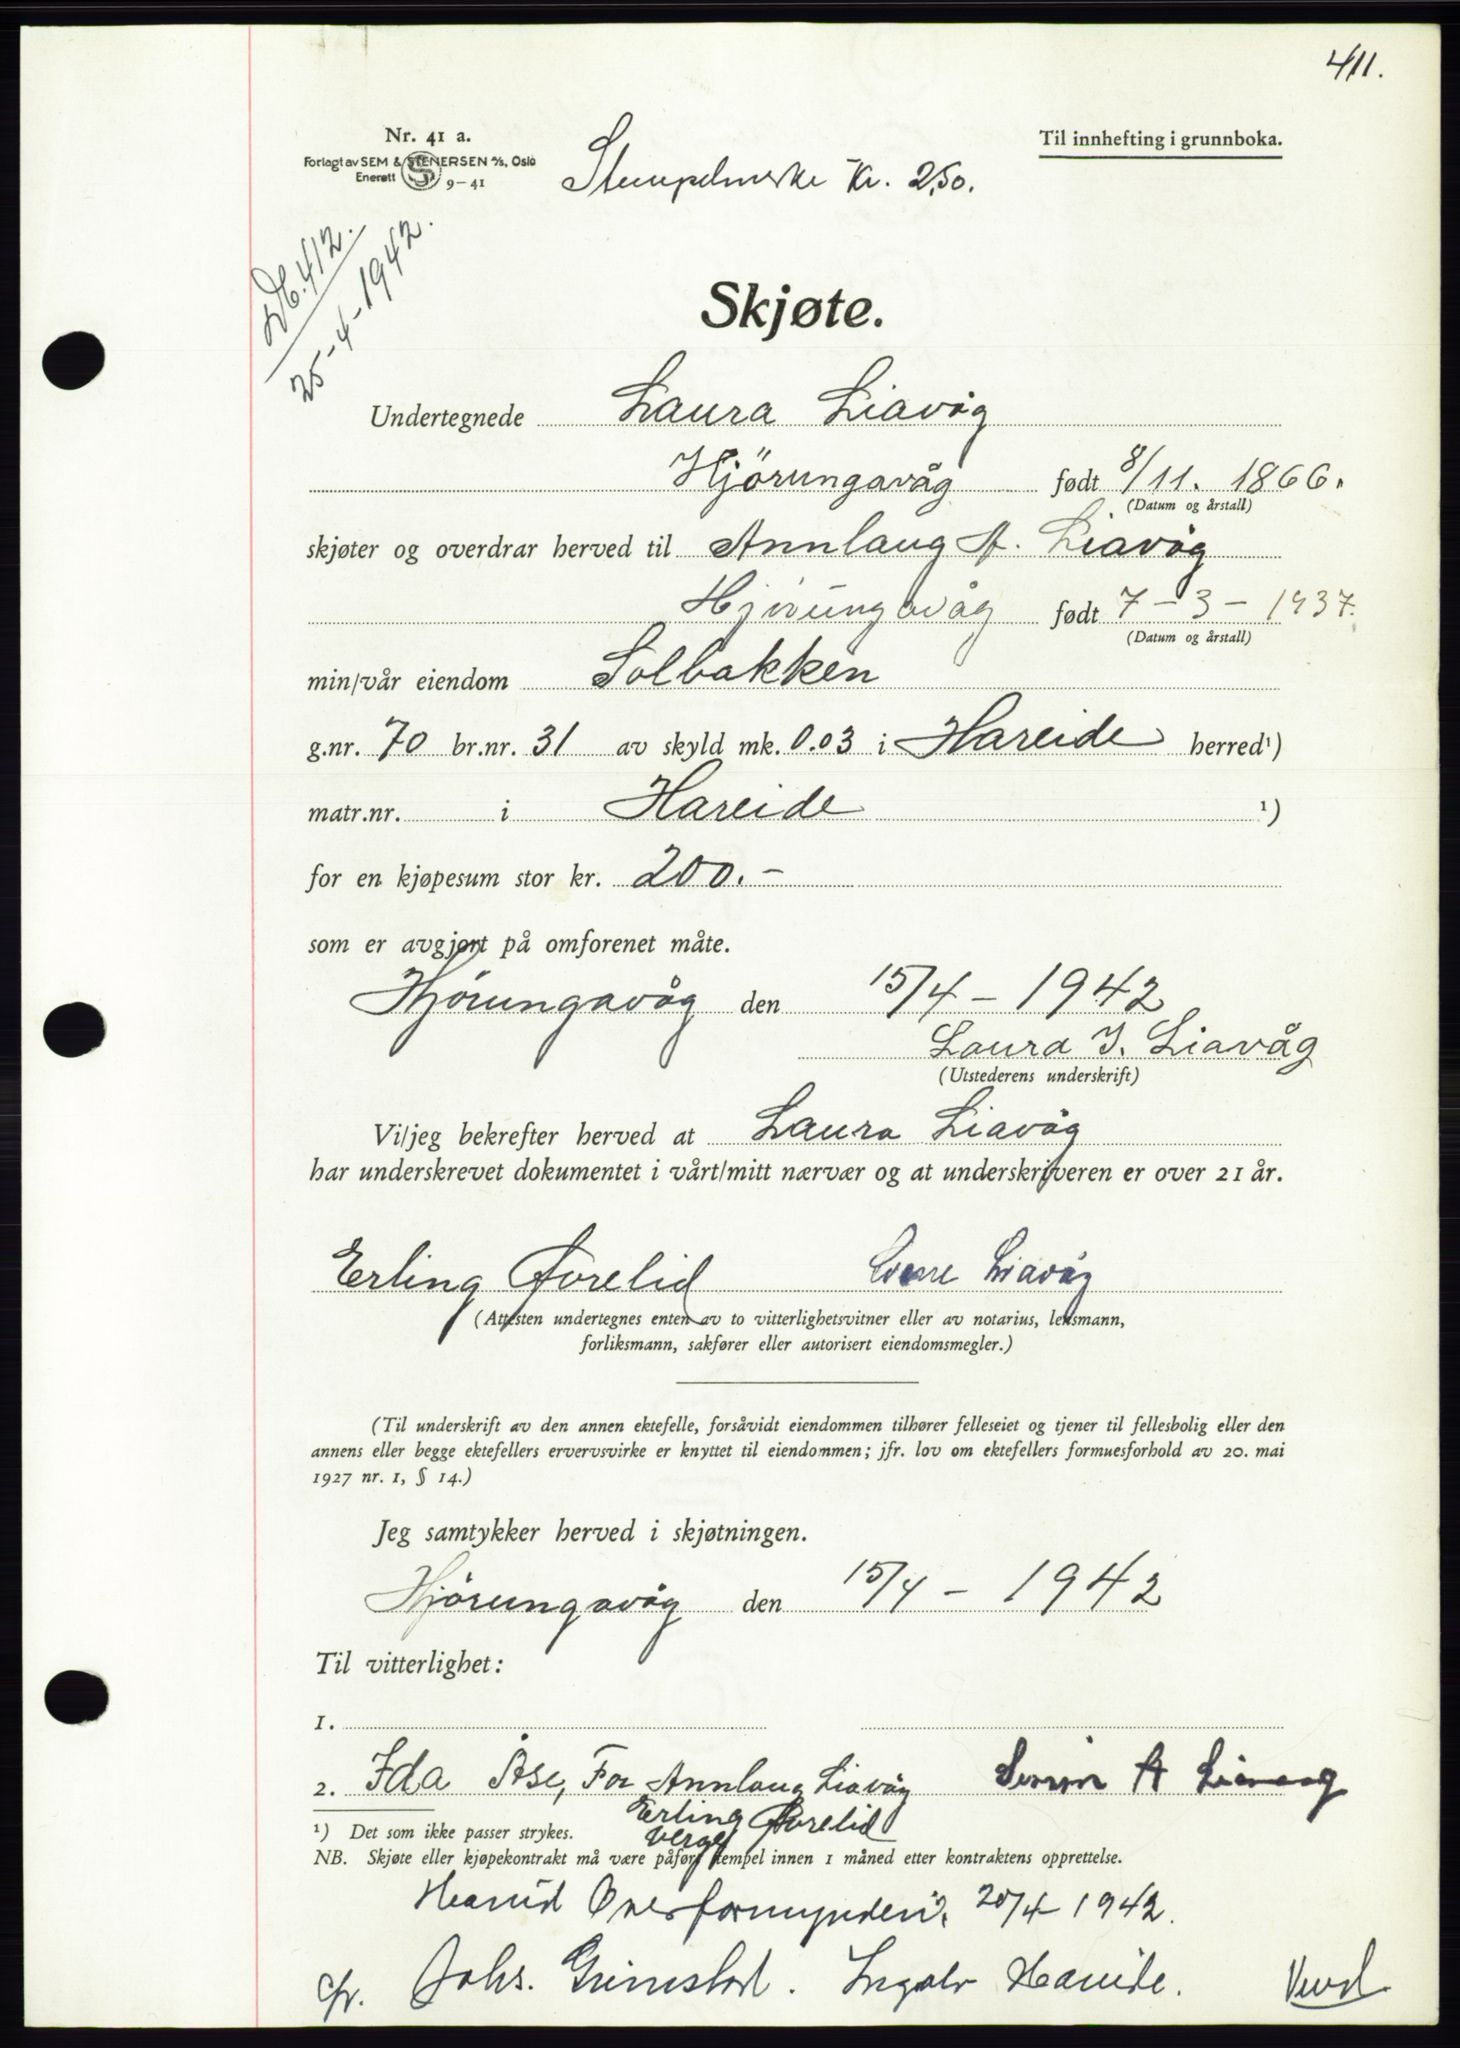 411.
Nr. 41 a.
Forlagt av SEM & STENERSEN A/S, Oslo
Enerett 9-41
Til innhefting i grunnboka.
Stempelmerke kr. 2,50.
412.
25-4-1942.
Skjøte.
Undertegnede Laura Liavåg
Hjörungavåg født 8/11. 1866.
(Datum og årstall)
skjøter og overdrar herved til Annlaug A. Liavåg
Hjörungavåg født 7-3-1937.
(Datum og årstall)
min/vår eiendom Solbakken
g.nr. 70 br.nr. 31 av skyld mk. 0.03 i Hareide herred¹)
matr.nr. i Hareide ¹)
for en kjøpesum stor kr. 200.-
som er avgjort på omforenet måte.
Hjørungavåg den 15/4 - 1942
Laura J. Liavåg
(Utstederens underskrift)
Vi/jeg bekrefter herved at Laura Liavåg
har underskrevet dokumentet i vårt/mitt nærvær og at underskriveren er over 21 år.
Erling Liavåg
(Attesten undertegnes enten av to vitterlighetsvitner eller av notarius, lensmann,
forliksmann, sakfører eller autorisert eiendomsmegler.)
(Til underskrift av den annen ektefelle, forsåvidt eiendommen tilhører felleseiet og tjener til fellesbolig eller den
annens eller begge ektefellers ervervsvirke er knyttet til eiendommen; jfr. lov om ektefellers formuesforhold av 20. mai
1927 nr. 1, § 14.)
Jeg samtykker herved i skjøtningen.
Hjörungavåg den 15/4 - 1942
Til vitterlighet:
1.
2. Ida Åse, For Annlaug Liavåg A
Erling
verge
¹) Det som ikke passer strykes.
NB. Skjøte eller kjøpekontrakt må være påført stempel innen 1 måned etter kontraktens opprettelse.
Hareid Overformynderi, 20/4 1942.
Johs. Grimstad. Ingolv Hareide.